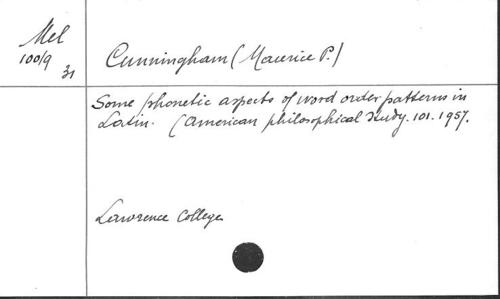 Mel
100/9
31
Cunningham (Maurice P.)
Some phonetic aspects of word order patterns in
Latin. (American philosophical study. 101. 1957.
Lawrence College